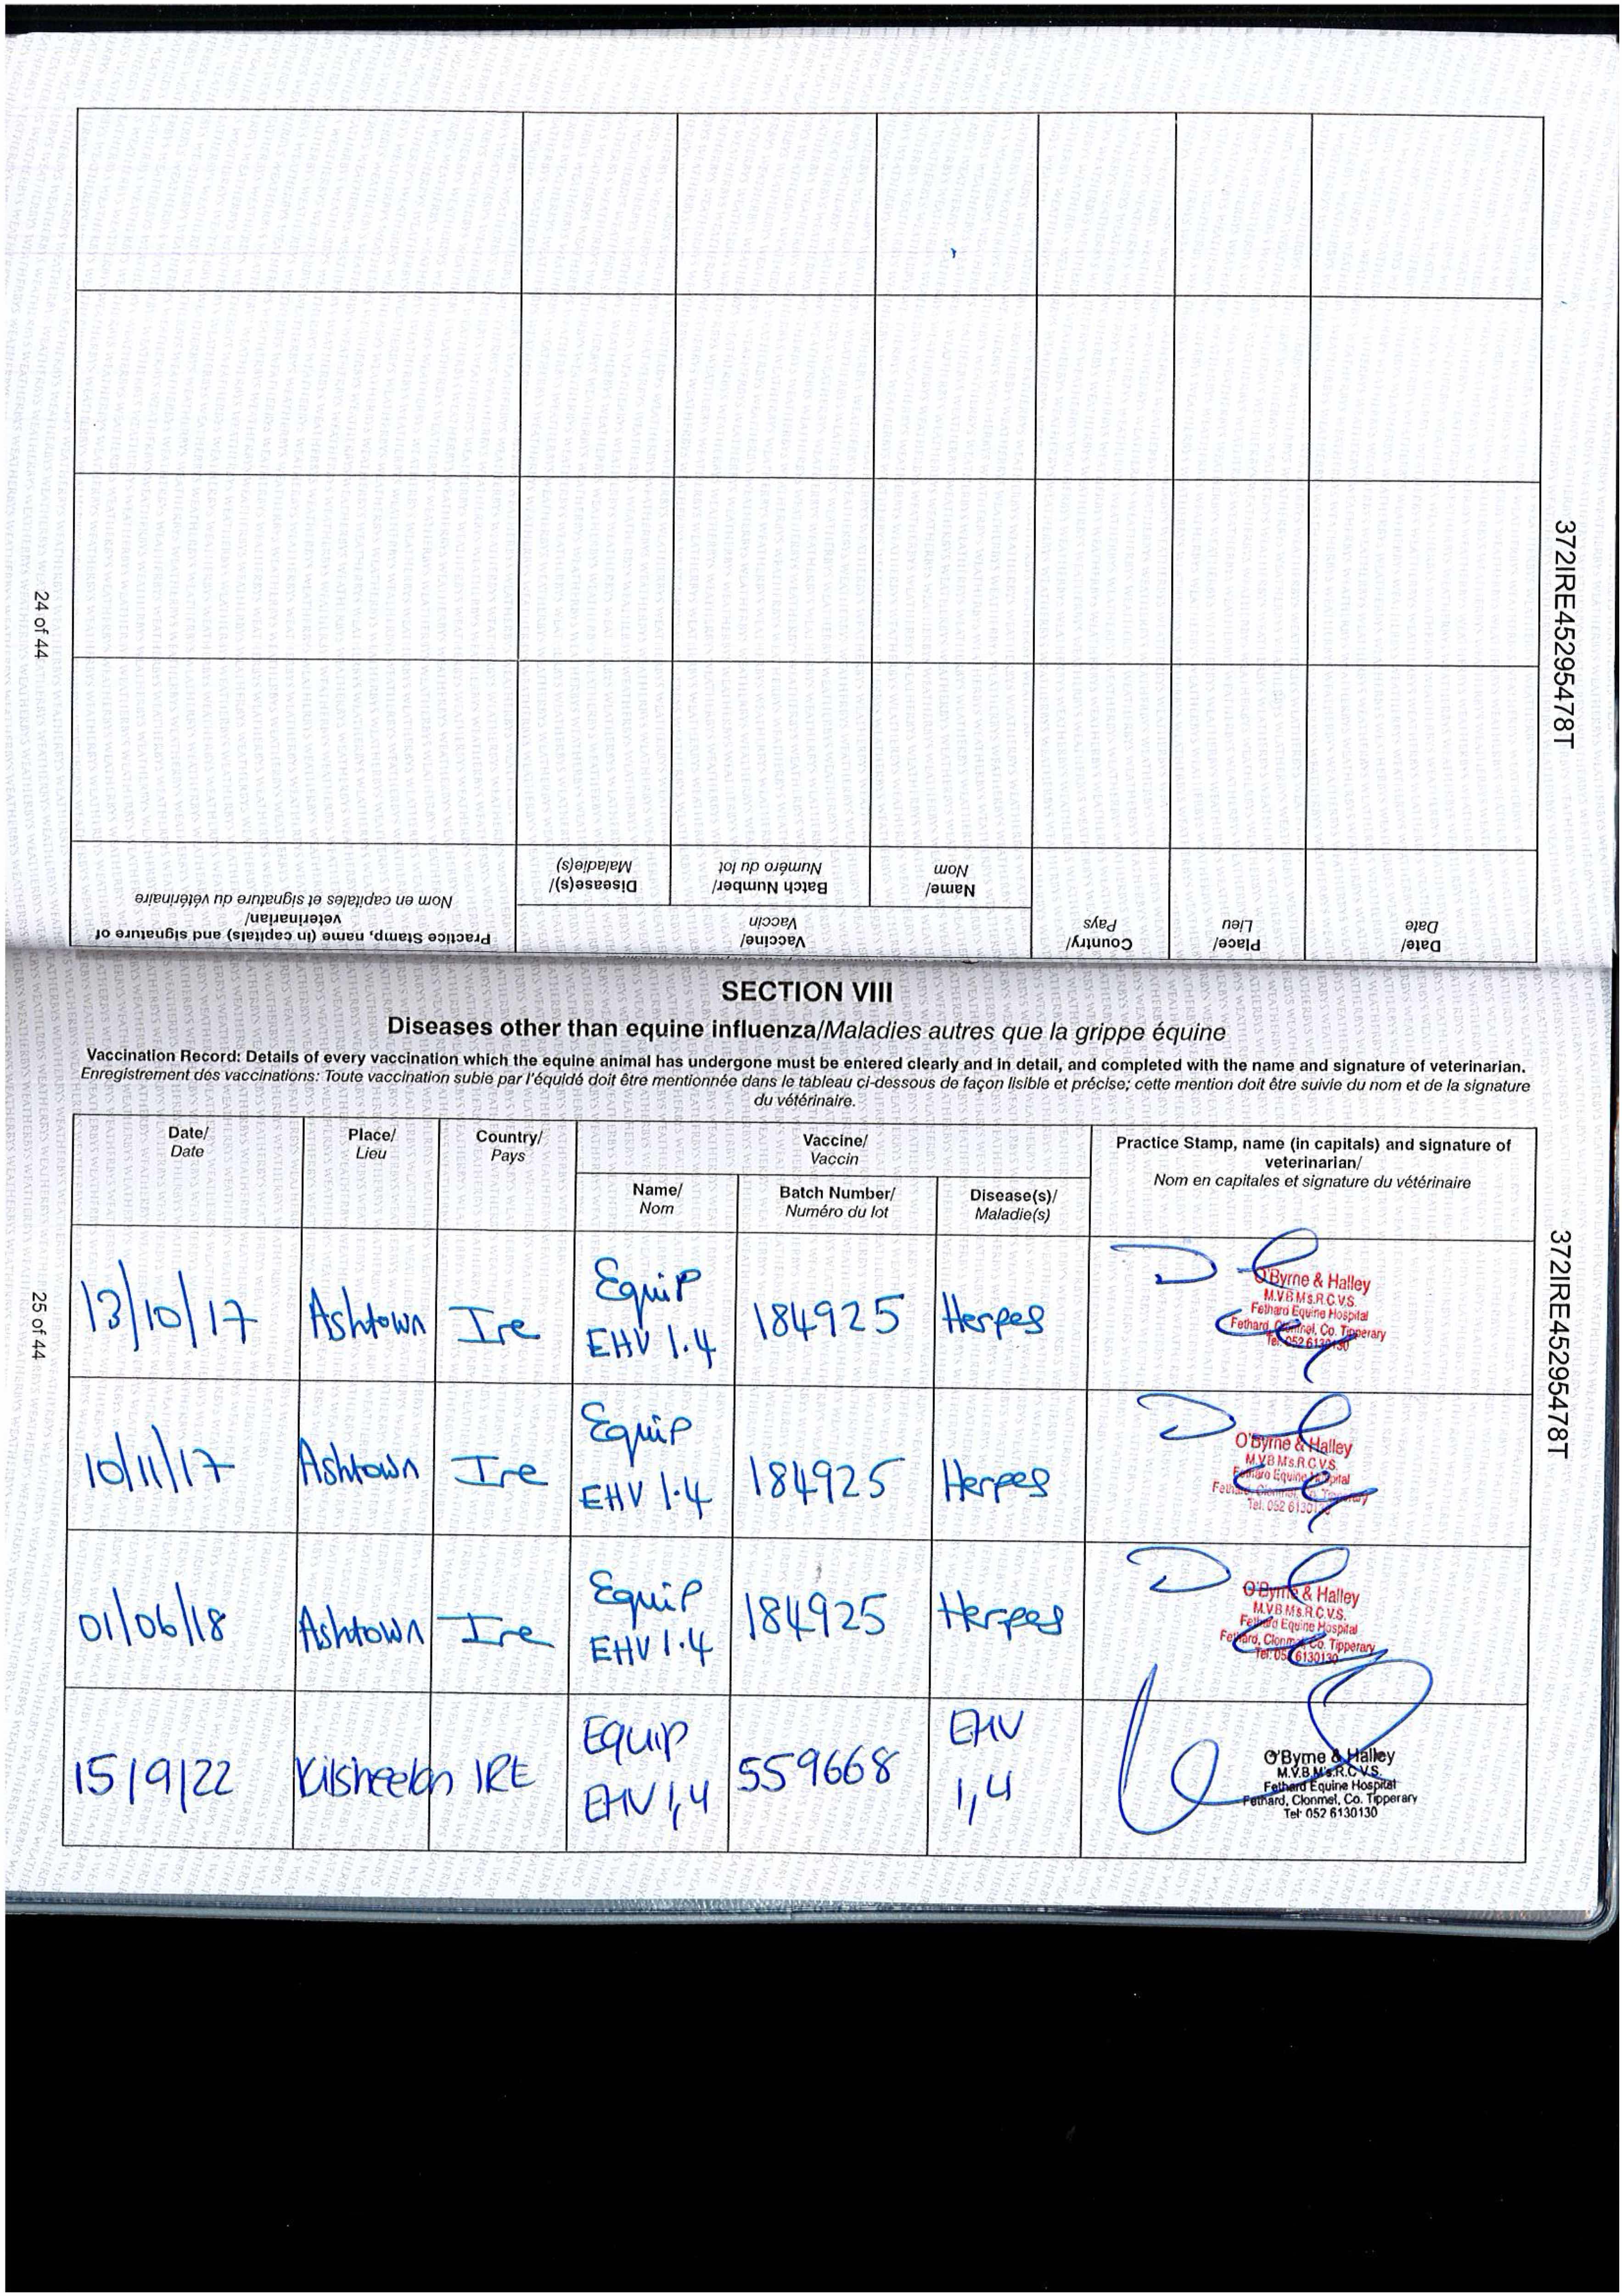 24 of 44
372IRE45295478T
Date/
Date
Place/
Lieu
Country/
Pays
Vaccine/
Vaccin
Name/
Nom
Batch Number/
Numéro du lot
Disease(s)/
Maladie(s)
Practice Stamp, name (in capitals) and signature of
veterinarian/
Nom en capitales et signature du vétérinaire
SECTION VIII
Diseases other than equine influenza/Maladies autres que la grippe équine
Vaccination Record: Details of every vaccination which the equine animal has undergone must be entered clearly and in detail, and completed with the name and signature of veterinarian.
Enregistrement des vaccinations: Toute vaccination subie par l'équidé doit être mentionnée dans le tableau ci-dessous de façon lisible et précise; cette mention doit être suivie du nom et de la signature
du vétérinaire.
Date/
Date
Place/
Lieu
Country/
Pays
Vaccine/
Vaccin
Name/
Nom
Batch Number/
Numéro du lot
Disease(s)/
Maladie(s)
Practice Stamp, name (in capitals) and signature of
veterinarian/
Nom en capitales et signature du vétérinaire
13/10/17
Ashtown
Ire
Equip
EHV 1.4
184925
Herpes
O'Byrne & Halley
M.V.B M.s.R.C.V.S.
Fethard Equine Hospital
Fethard, Clonmel, Co. Tipperary
Tel: 052 6130130
10/11/17
Ashtown
Ire
Equip
EHV 1.4
184925
Herpes
O'Byrne & Halley
M.V.B M.s.R.C.V.S.
Fethard Equine Hospital
Fethard, Clonmel, Co. Tipperary
Tel: 052 6130130
01/06/18
Ashtown
Ire
Equip
EHV 1.4
184925
Herpes
O'Byrne & Halley
M.V.B M.s.R.C.V.S.
Fethard Equine Hospital
Fethard, Clonmel, Co. Tipperary
Tel: 052 6130130
15/9/22
Kilsheelan
IRE
Equip
EHV 1,4
559668
EHV
1,4
O'Byrne & Halley
M.V.B M's.R.C.V.S.
Fethard Equine Hospital
Fethard, Clonmel, Co. Tipperary
Tel: 052 6130130
25 of 44
372IRE45295478T